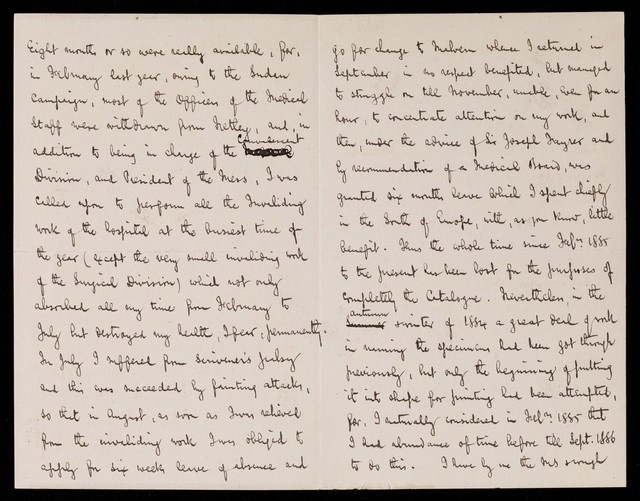 Eight months or so were really available, for,
in February last year, owing to the Sudan
Campaign, most of the Officers of the Medical
Staff were withdrawn from Netley, and, in
addition to being in charge of the Convalescent
Division, and President of the Mess, I was
called upon to perform all the Invaliding
work of the hospital at the busiest time of
the year (except the very small invaliding work
of the Surgical Division) which not only
absorbed all my time from February to
July but destroyed my health, I fear, permanently.
In July I suffered from Scrivener's palsy
and this was succeeded by fainting attacks,
so that in August, as soon as I was relieved
from the invaliding work I was obliged to
apply for six weeks leave of absence and
go for change to Malvern whence I returned in
September in no respect benefited, but managed
to struggle on till November, unable, even for an
hour, to concentrate attention on my work, and
then, under the advice of Sir Joseph Fayrer and
by recommendation of a Medical Board, was
granted six months leave which I spent chiefly
in the South of Europe, with, as you know, little
benefit. Thus the whole time since Feby 1885
to the present has been lost for the purposes of
completing the Catalogue. Nevertheless, in the
autumn
Summer & winter of 1884 a great deal of work
in naming the specimens had been got through
previously, but only the beginning of putting
it into shape for printing had been attempted,
for, I naturally considered in Feby 1885 that
I had abundance of time before till Sept. 1886
to do this. I have by me the M.S. enough